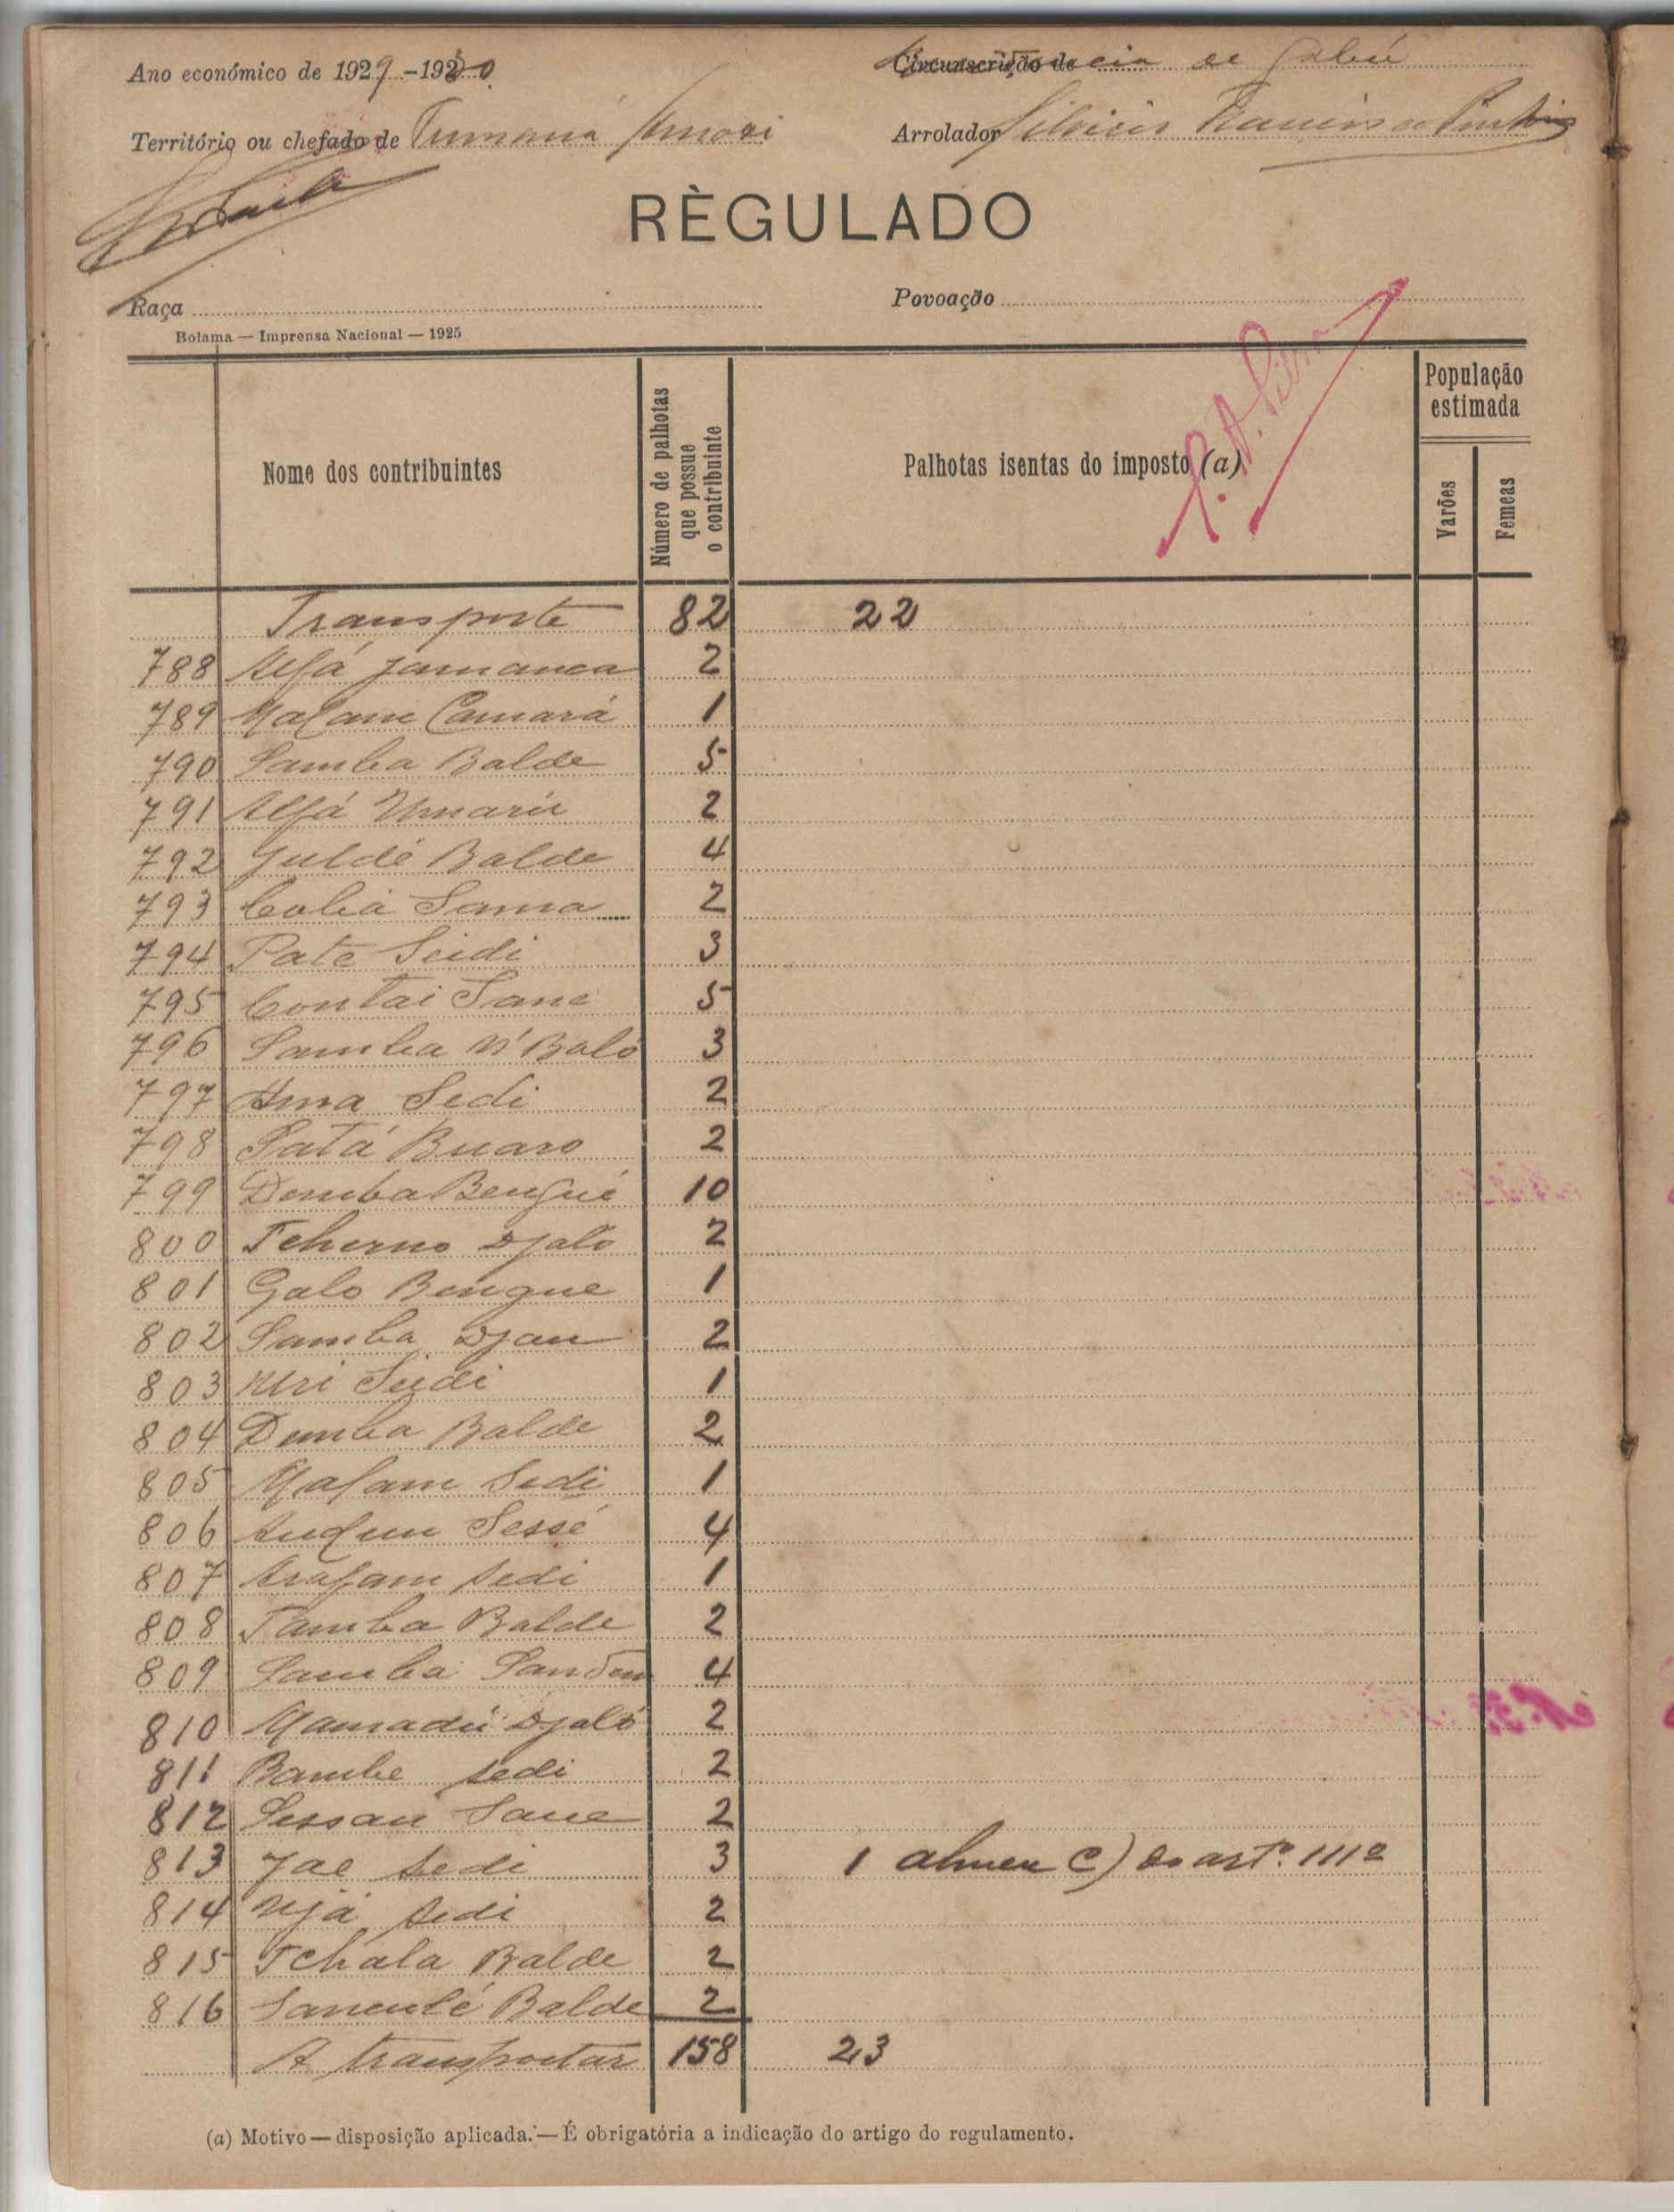 Ano económico de 1929-1930
Circunscrição de de Gabú
Território ou chefado de Tumaná
Arrolador
RÈGULADO
Raça
Povoação
Bolama — Imprensa Nacional — 1925
Nome dos contribuintes
Número de palhotas que possue o contribuinte
Palhotas isentas do imposto (a)
População estimada
Varões
Femeas
Transporte 82 22
788 Alfá Jamanca 2
789 Malam Camará 1
790 Samba Balde 5
791 Alfá Umarú 2
792 Juldé Balde 4
793 Sama 2
794 Pate Seidi 3
795 Contai Sane 5
796 Samba N'Baló 3
797 Ama Sedi 2
798 Satá Buaro 2
799 Demba Bengué 10
800 Tcherno Djaló 2
801 Galo Bengue 1
802 Samba Djau 2
803 Seidi 1
804 Demba Balde 2
805 Malam Sedi 1
806 Sessé 4
807 Arafam Sedi 1
808 Samba Balde 2
809 Samba 4
810 Mamadú Djaló 2
811 Bambe Sedi 2
812 Sessau Sane 2
813 Jae Sedi 3 1 alinea C) do artº. 111º
814 Sedi 2
815 Tchala Balde 2
816 Sanculé Balde 2
A transportar 158 23
(a) Motivo — disposição aplicada. — É obrigatória a indicação do artigo do regulamento.